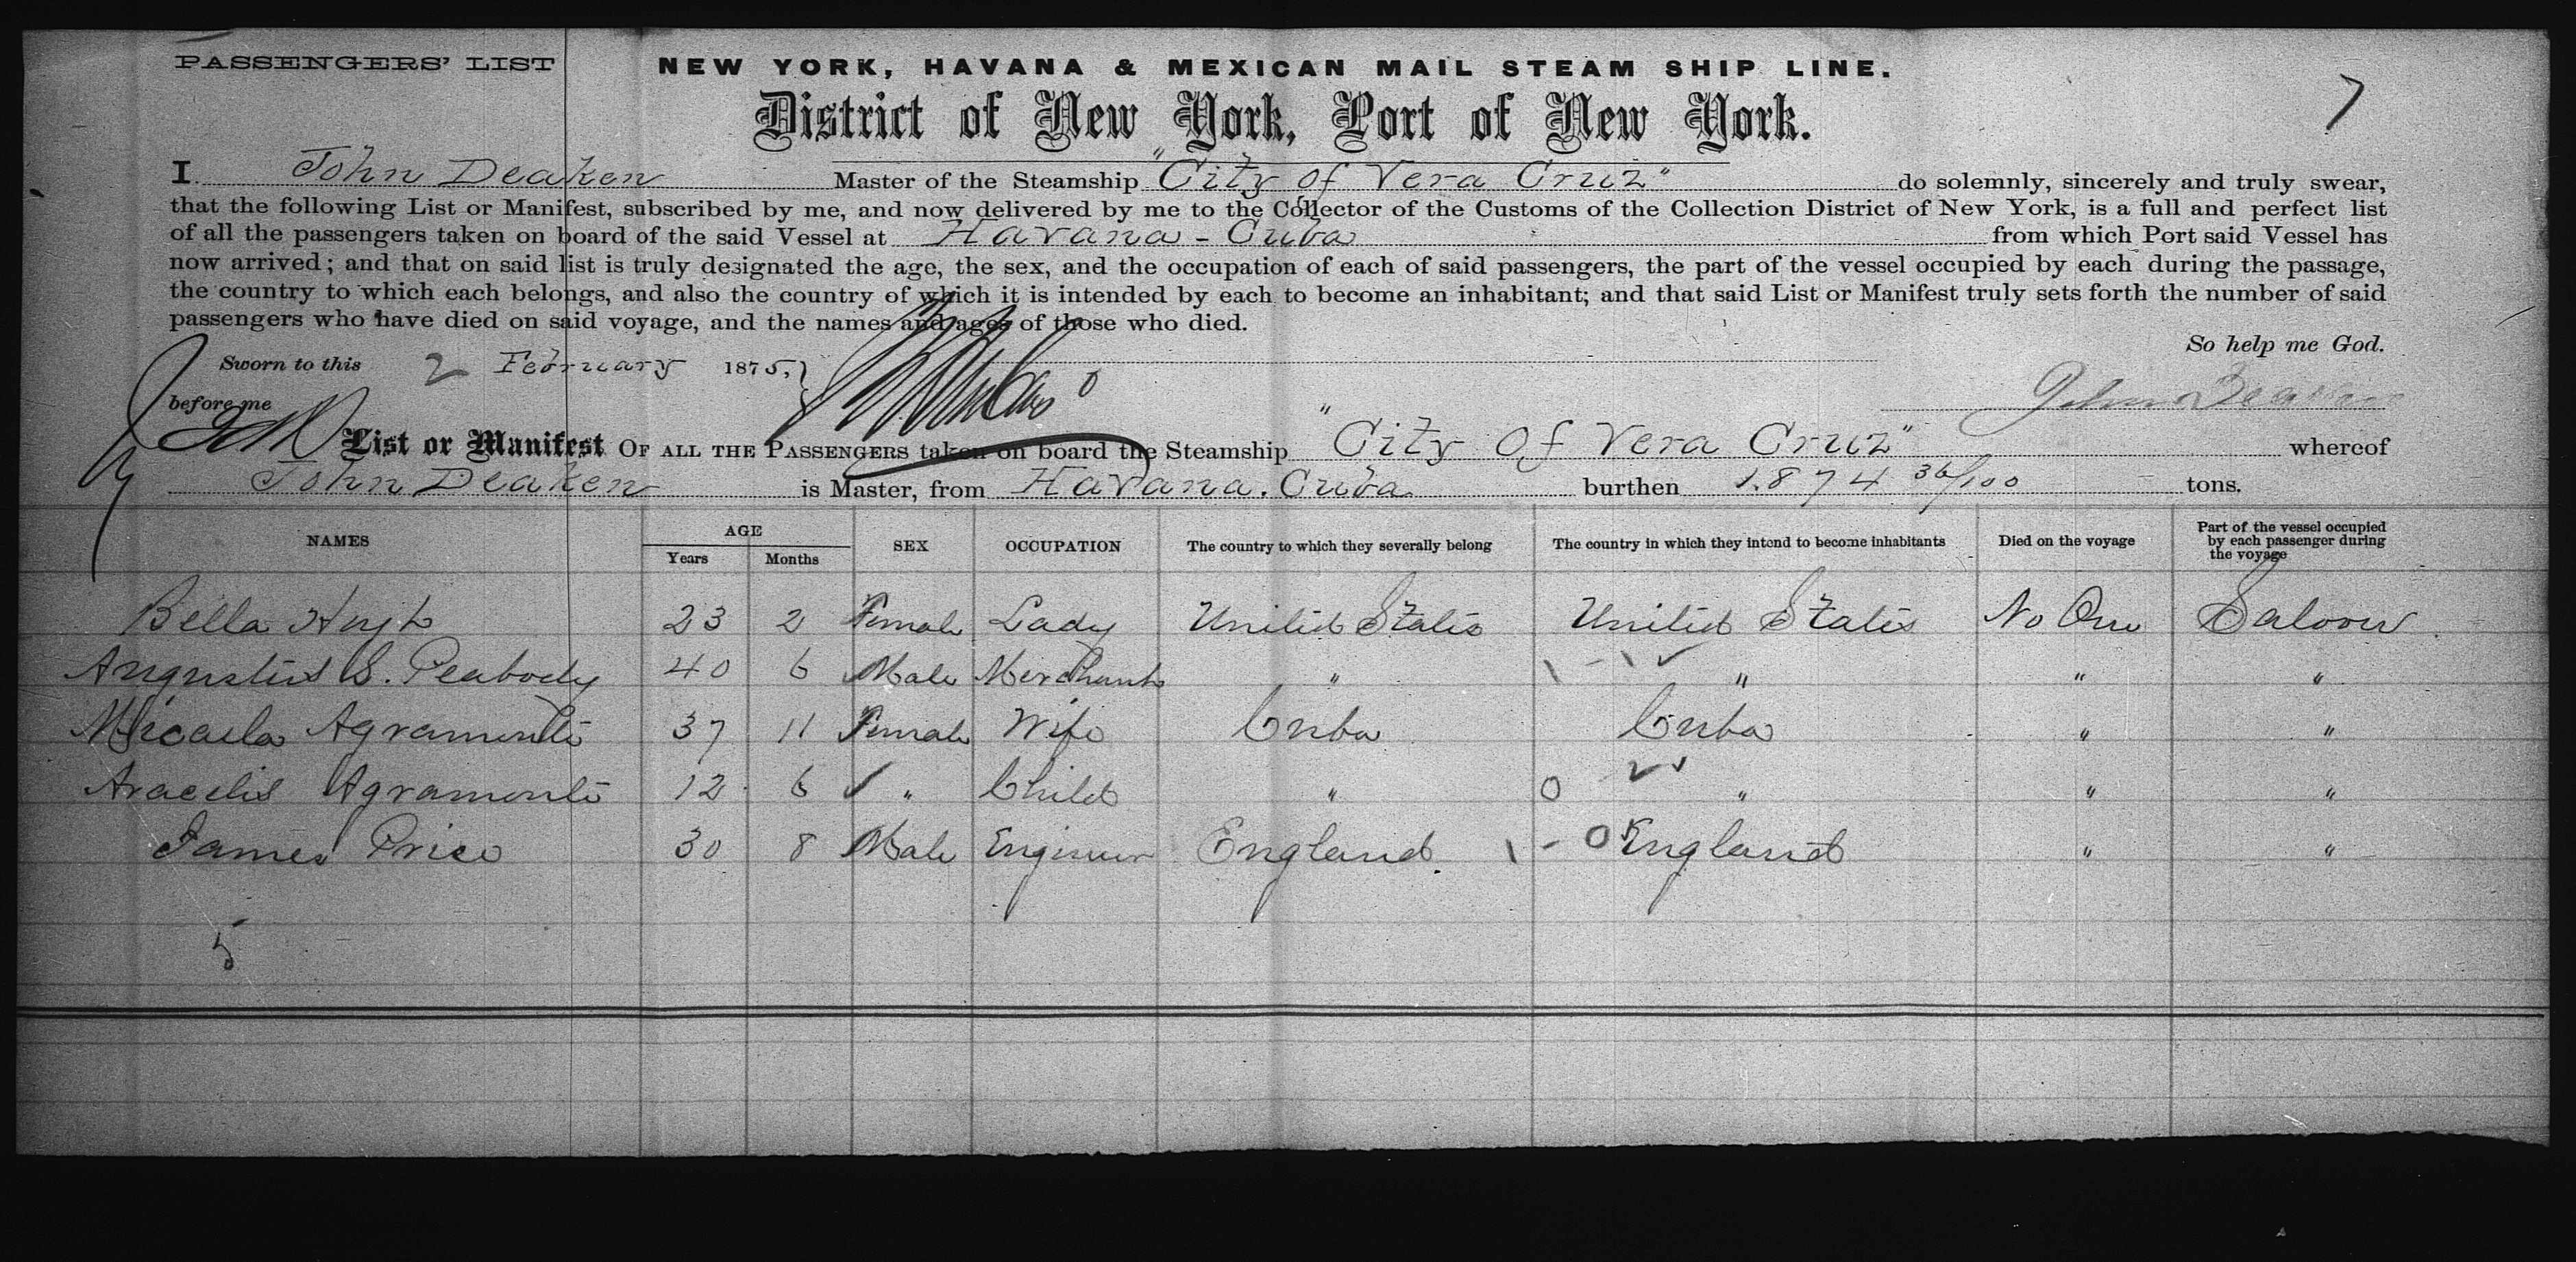 PASSENGERS' LIST
NEW YORK, HAVANA & MEXICAN MAIL STEAM SHIP LINE.
7
District of New York, Port of New York.
I John Deaken Master of the Steamship "City of Vera Cruz" do solemnly, sincerely and truly swear,
that the following List or Manifest, subscribed by me, and now delivered by me to the Collector of the Customs of the Collection District of New York, is a full and perfect list
of all the passengers taken on board of the said Vessel at Havana - Cuba from which Port said Vessel has
now arrived; and that on said list is truly designated the age, the sex, and the occupation of each of said passengers, the part of the vessel occupied by each during the passage,
the country to which each belongs, and also the country of which it is intended by each to become an inhabitant; and that said List or Manifest truly sets forth the number of said
passengers who have died on said voyage, and the names and ages of those who died.
So help me God.
Sworn to this 2 February 1875,
before me
John Deaken
List or Manifest OF ALL THE PASSENGERS taken on board the Steamship "City of Vera Cruz" whereof
John Deaken is Master, from Havana. Cuba burthen 1.874 36/100 tons.
NAMES AGE Years Months SEX OCCUPATION The country to which they severally belong The country in which they intend to become inhabitants Died on the voyage Part of the vessel occupied by each passenger during the voyage
Bella 23 2 Female Lady United States United States No One Saloon
Augustus S. Peabody 40 6 Male Merchant " " " "
Micaela Agramonte 37 11 Female Wife Cuba Cuba " "
Aracelis Agramonte 12 6 " Child " " " "
James Price 30 8 Male Engineer England England " "
5